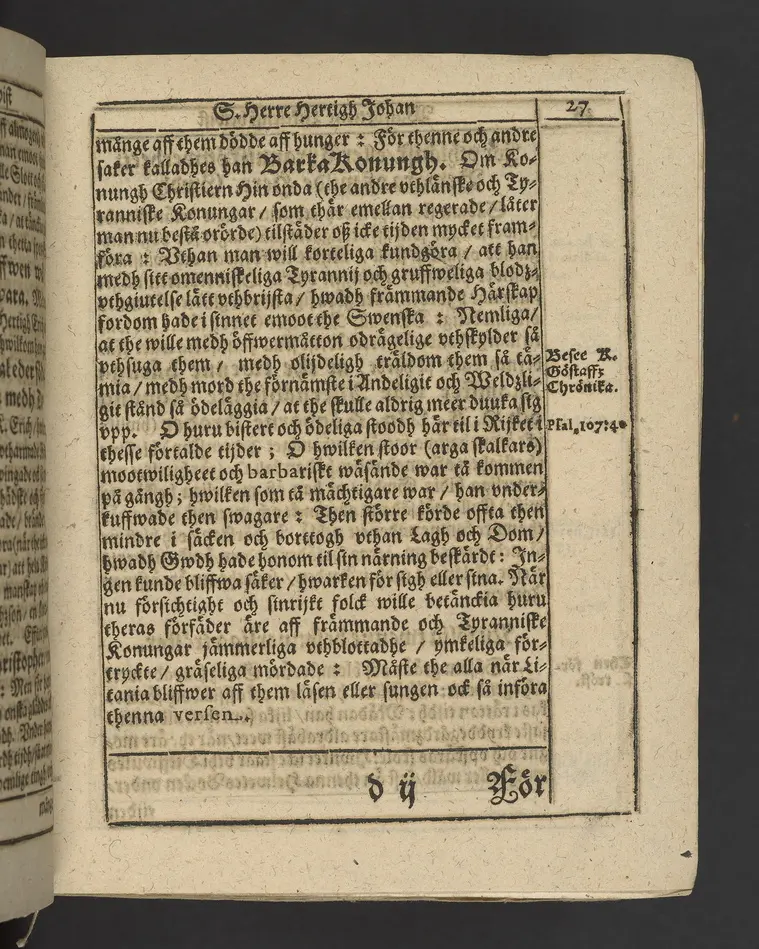 S. Herre Hertigh Johan 27
månge aff them dödde aff hunger : För thenne och andre
saker kalladhes han BarkaKonungh. Om Ko-
nungh Christiern Hin onda (the andre vthlänske och Ty-
ranniske Konungar / som thär emellan regerade / låter
man nu bestå orörde) tilstäder oß icke tijden mycket fram-
föra : Vthan man will korteliga kundgöra / att han
medh sitt omenniskeliga Tyrannij och gruffweliga blodz-
vthgiutelse lätt vthbrijsta / hwadh främmande Härskap
fordom hade i sinnet emoot the Swenska : Nemliga /
at the wille medh öffwermåtton odrägelige vthskylder så
vthsuga them / medh olijdeligh träldom them så tä-
mia / medh mord the förnämste i Andeligit och Weldzli-
git ständ så ödeläggia / at the skulle aldrig meer duuka sig
vpp. O huru bistert och ödeliga stoodh här til i Rijket i
thesse förtalde tijder ; O hwilken stoor (arga skalkars)
mootwiligheet och barbariskt wäsände war tå kommen
på gångh ; hwilken som tå mächtigare war / han vnder-
kuffwade then swagare : Then större körde offta then
mindre i säcken och borttogh vthan Lagh och Dom /
hwadh Gwdh hade honom til sin närning beskärdt : In-
gen kunde bliffwa säker / hwarken för sigh eller sina. När
nu försichtight och sinrijkt folck wille betänckia huru
theras förfäder äre aff främmande och Tyranniske
Konungar jämmerliga vthblottadhe / ymkeliga för-
tryckte / gräseliga mördade : Måste the alla när Li-
tania bliffwer aff them läsen eller sungen ock så införa
thenna versen..
Besee K.
Göstaffz
Chrönika.
Psal. 107:40
d ij För